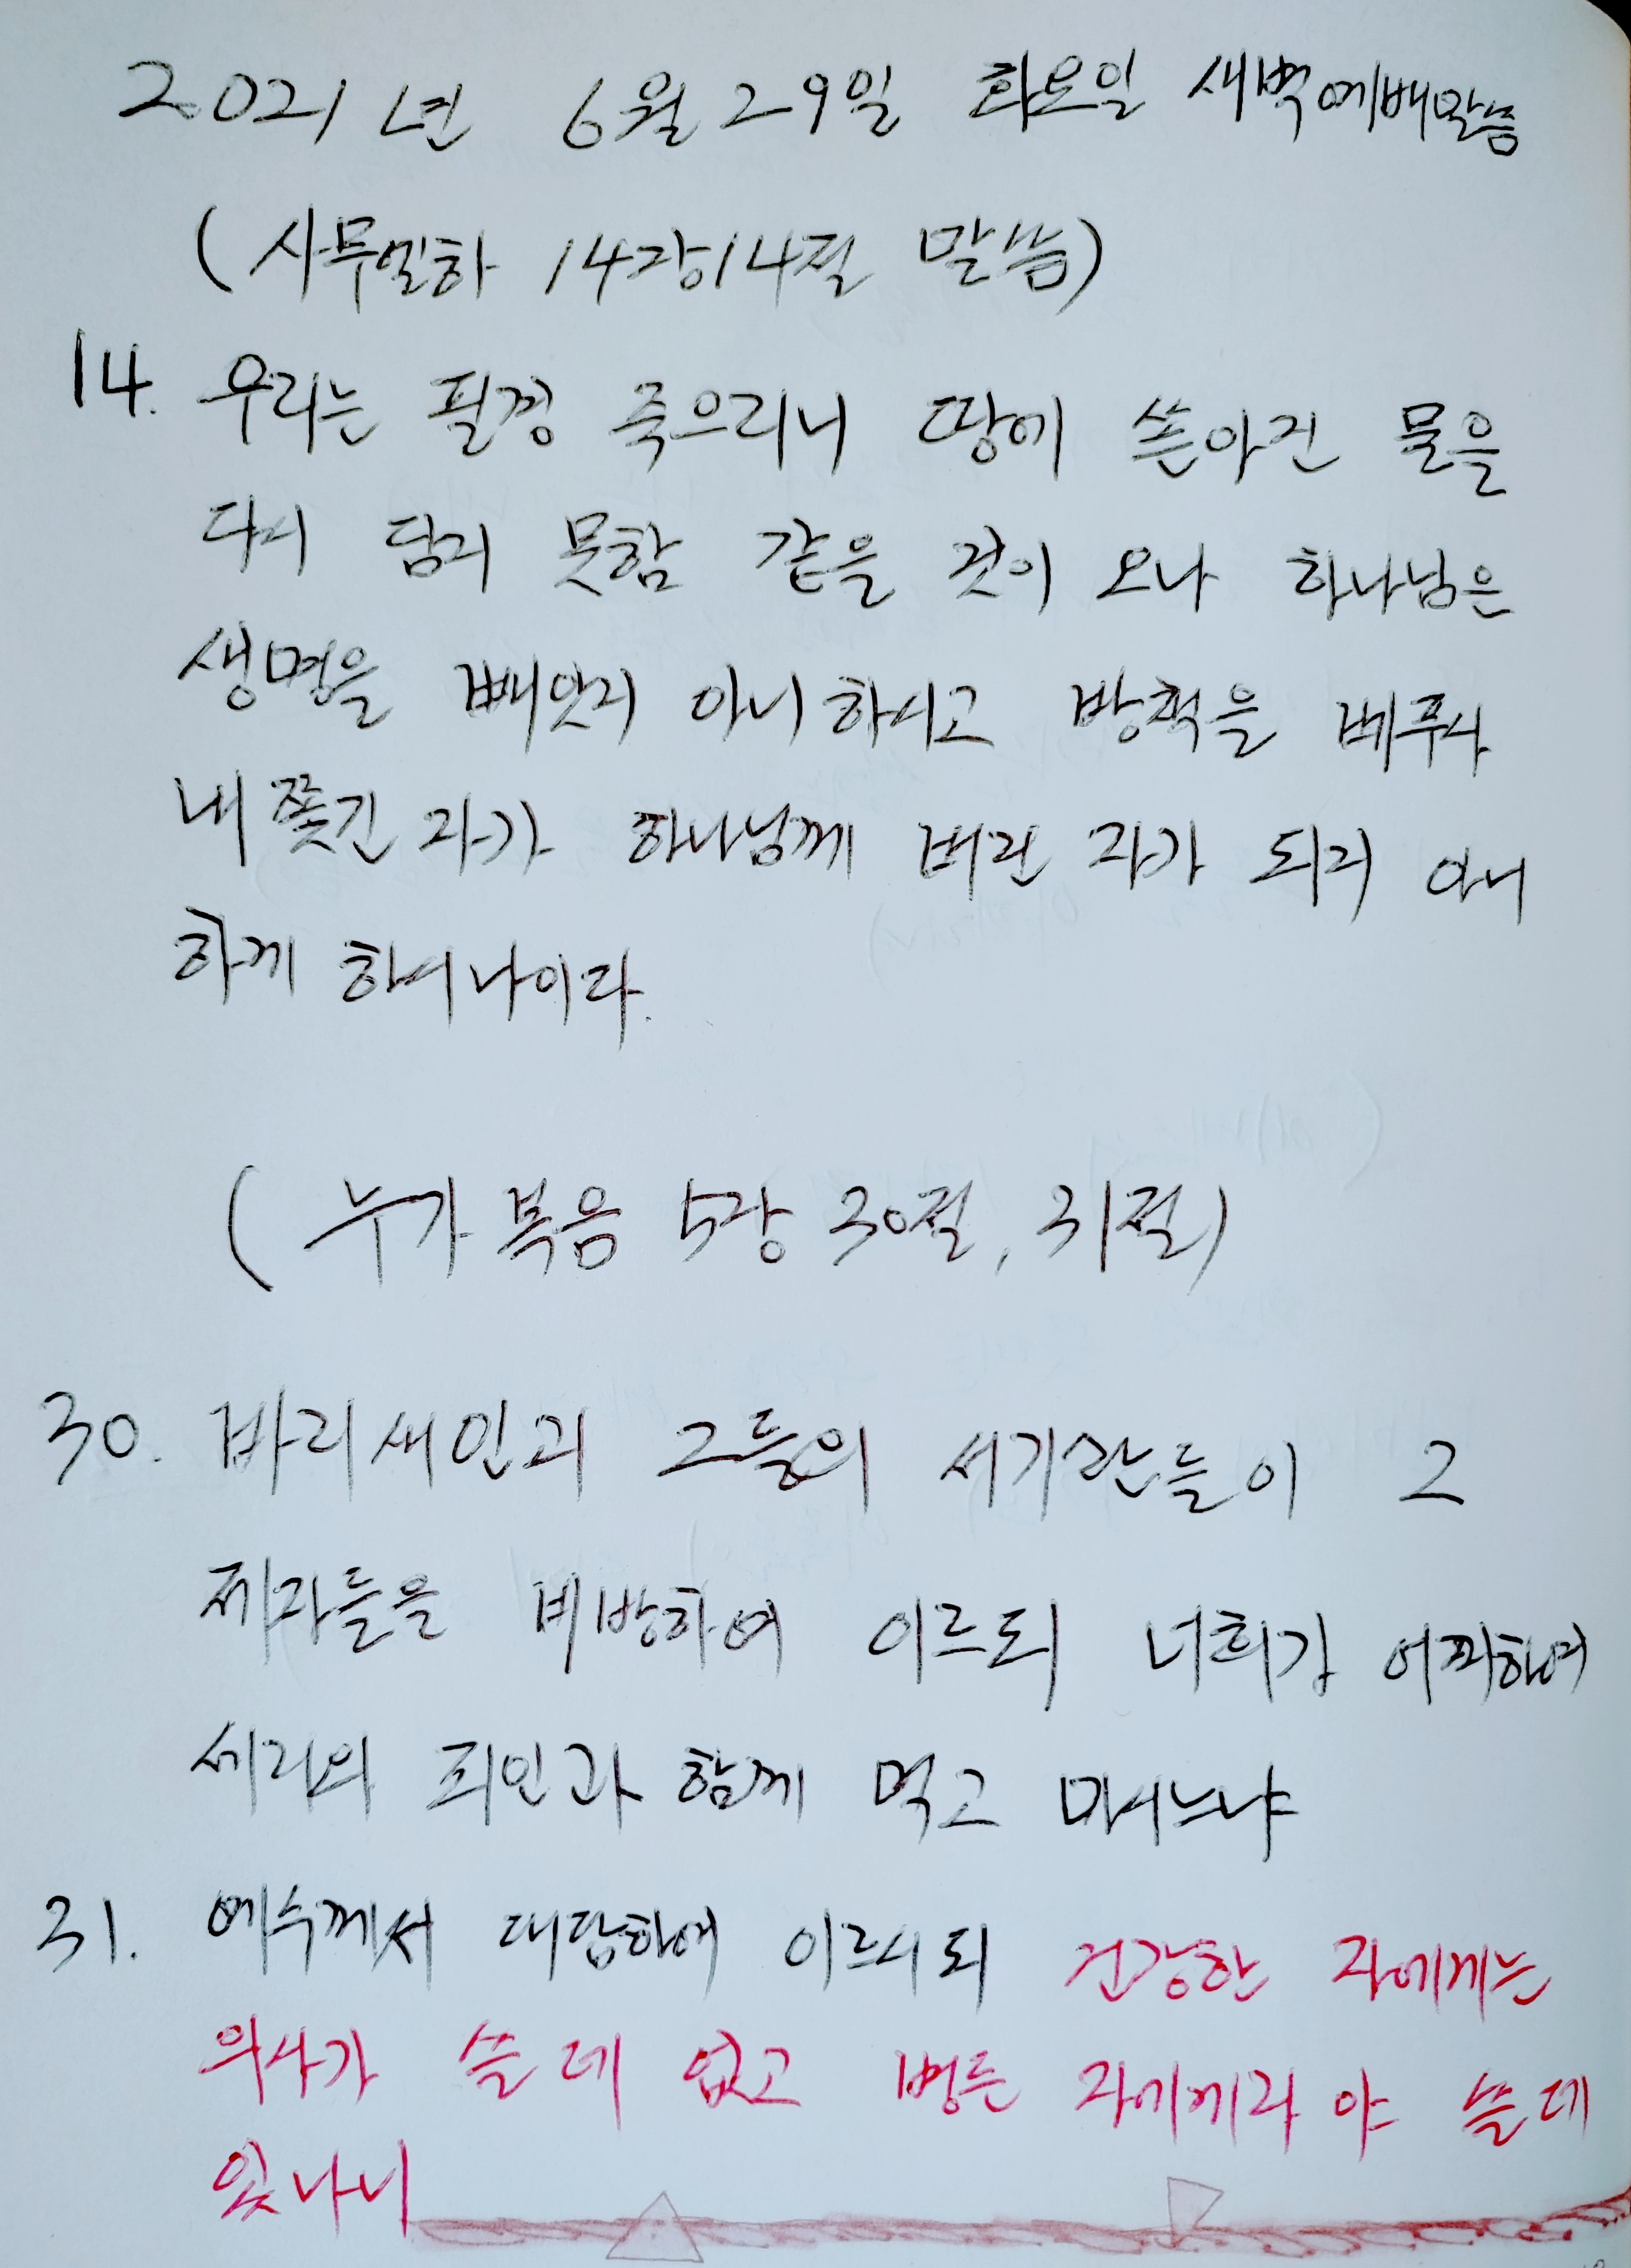 2021년 6월 29일 화요일 새벽예배말씀
(사무엘하 14장14절 말씀)
14. 우리는 필경 죽으리니 땅에 쏟아진 물을
다시 담지 못함 같을 것이 오나 하나님은
생명을 빼앗지 아니하시고 방책을 베푸사
내쫓긴 자가 하나님께 버린 자가 되지 아니
하게 하시나이다.
(누가복음 5장 30절, 31절)
30. 바리새인과 그들의 서기관들이 그
제자들을 비방하여 이르되 너희가 어찌하여
세리와 죄인과 함께 먹고 마시느냐
31. 예수께서 대답하여 이르시되 건강한 자에게는
의사가 쓸 데 없고 병든 자에게라야 쓸 데
있나니